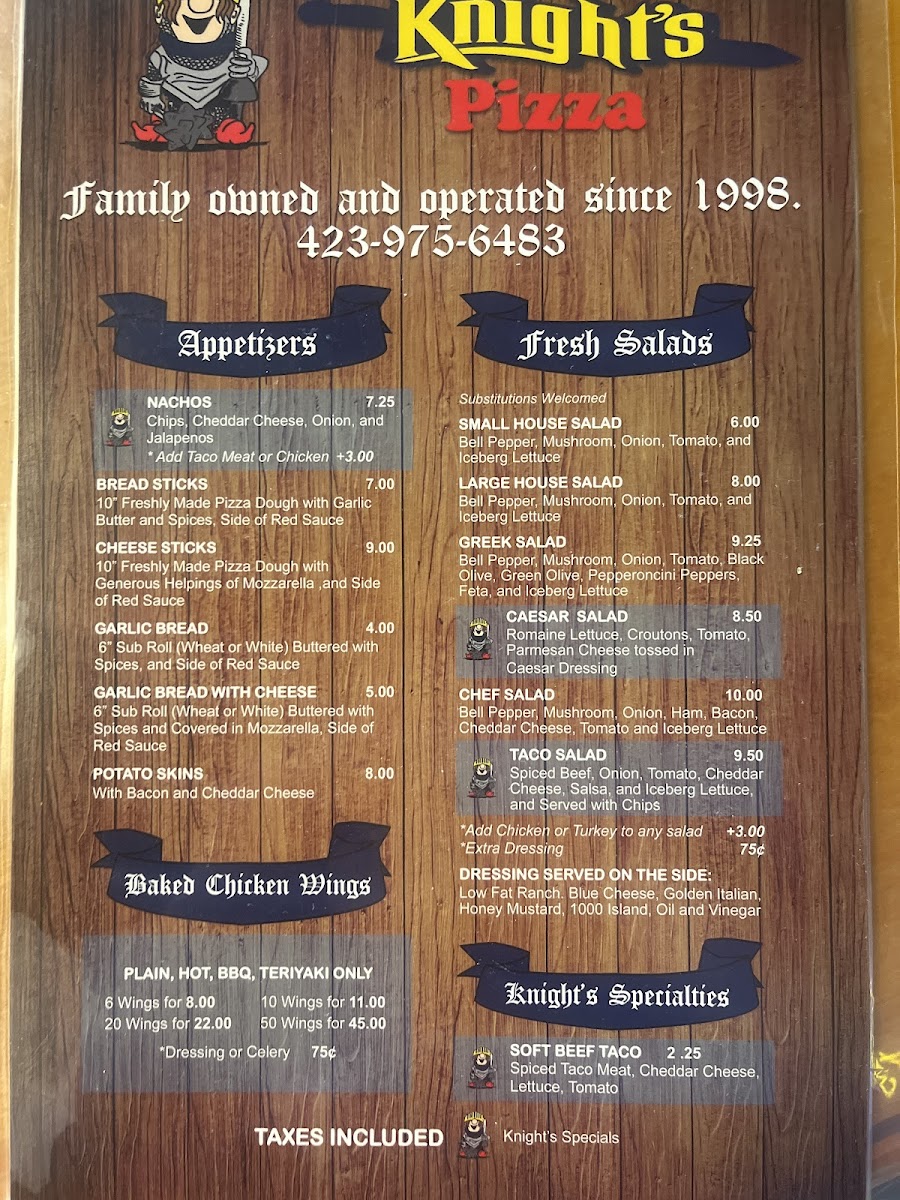 Knight's
Pizza
Family owned and operated since 1998.
423-975-6483
Appetizers
NACHOS 7.25
Chips, Cheddar Cheese, Onion, and
Jalapenos
* Add Taco Meat or Chicken +3.00
BREAD STICKS 7.00
10" Freshly Made Pizza Dough with Garlic
Butter and Spices, Side of Red Sauce
CHEESE STICKS 9.00
10" Freshly Made Pizza Dough with
Generous Helpings of Mozzarella ,and Side
of Red Sauce
GARLIC BREAD 4.00
6" Sub Roll (Wheat or White) Buttered with
Spices, and Side of Red Sauce
GARLIC BREAD WITH CHEESE 5.00
6" Sub Roll (Wheat or White) Buttered with
Spices and Covered in Mozzarella, Side of
Red Sauce
POTATO SKINS 8.00
With Bacon and Cheddar Cheese
Baked Chicken Wings
PLAIN, HOT, BBQ, TERIYAKI ONLY
6 Wings for 8.00 10 Wings for 11.00
20 Wings for 22.00 50 Wings for 45.00
*Dressing or Celery 75¢
Fresh Salads
Substitutions Welcomed
SMALL HOUSE SALAD 6.00
Bell Pepper, Mushroom, Onion, Tomato, and
Iceberg Lettuce
LARGE HOUSE SALAD 8.00
Bell Pepper, Mushroom, Onion, Tomato, and
Iceberg Lettuce
GREEK SALAD 9.25
Bell Pepper, Mushroom, Onion, Tomato, Black
Olive, Green Olive, Pepperoncini Peppers,
Feta, and Iceberg Lettuce
CAESAR SALAD 8.50
Romaine Lettuce, Croutons, Tomato,
Parmesan Cheese tossed in
Caesar Dressing
CHEF SALAD 10.00
Bell Pepper, Mushroom, Onion, Ham, Bacon,
Cheddar Cheese, Tomato and Iceberg Lettuce
TACO SALAD 9.50
Spiced Beef, Onion, Tomato, Cheddar
Cheese, Salsa, and Iceberg Lettuce,
and Served with Chips
*Add Chicken or Turkey to any salad +3.00
*Extra Dressing 75¢
DRESSING SERVED ON THE SIDE:
Low Fat Ranch. Blue Cheese, Golden Italian,
Honey Mustard, 1000 Island, Oil and Vinegar
Knight's Specialties
SOFT BEEF TACO 2 .25
Spiced Taco Meat, Cheddar Cheese,
Lettuce, Tomato
TAXES INCLUDED Knight's Specials